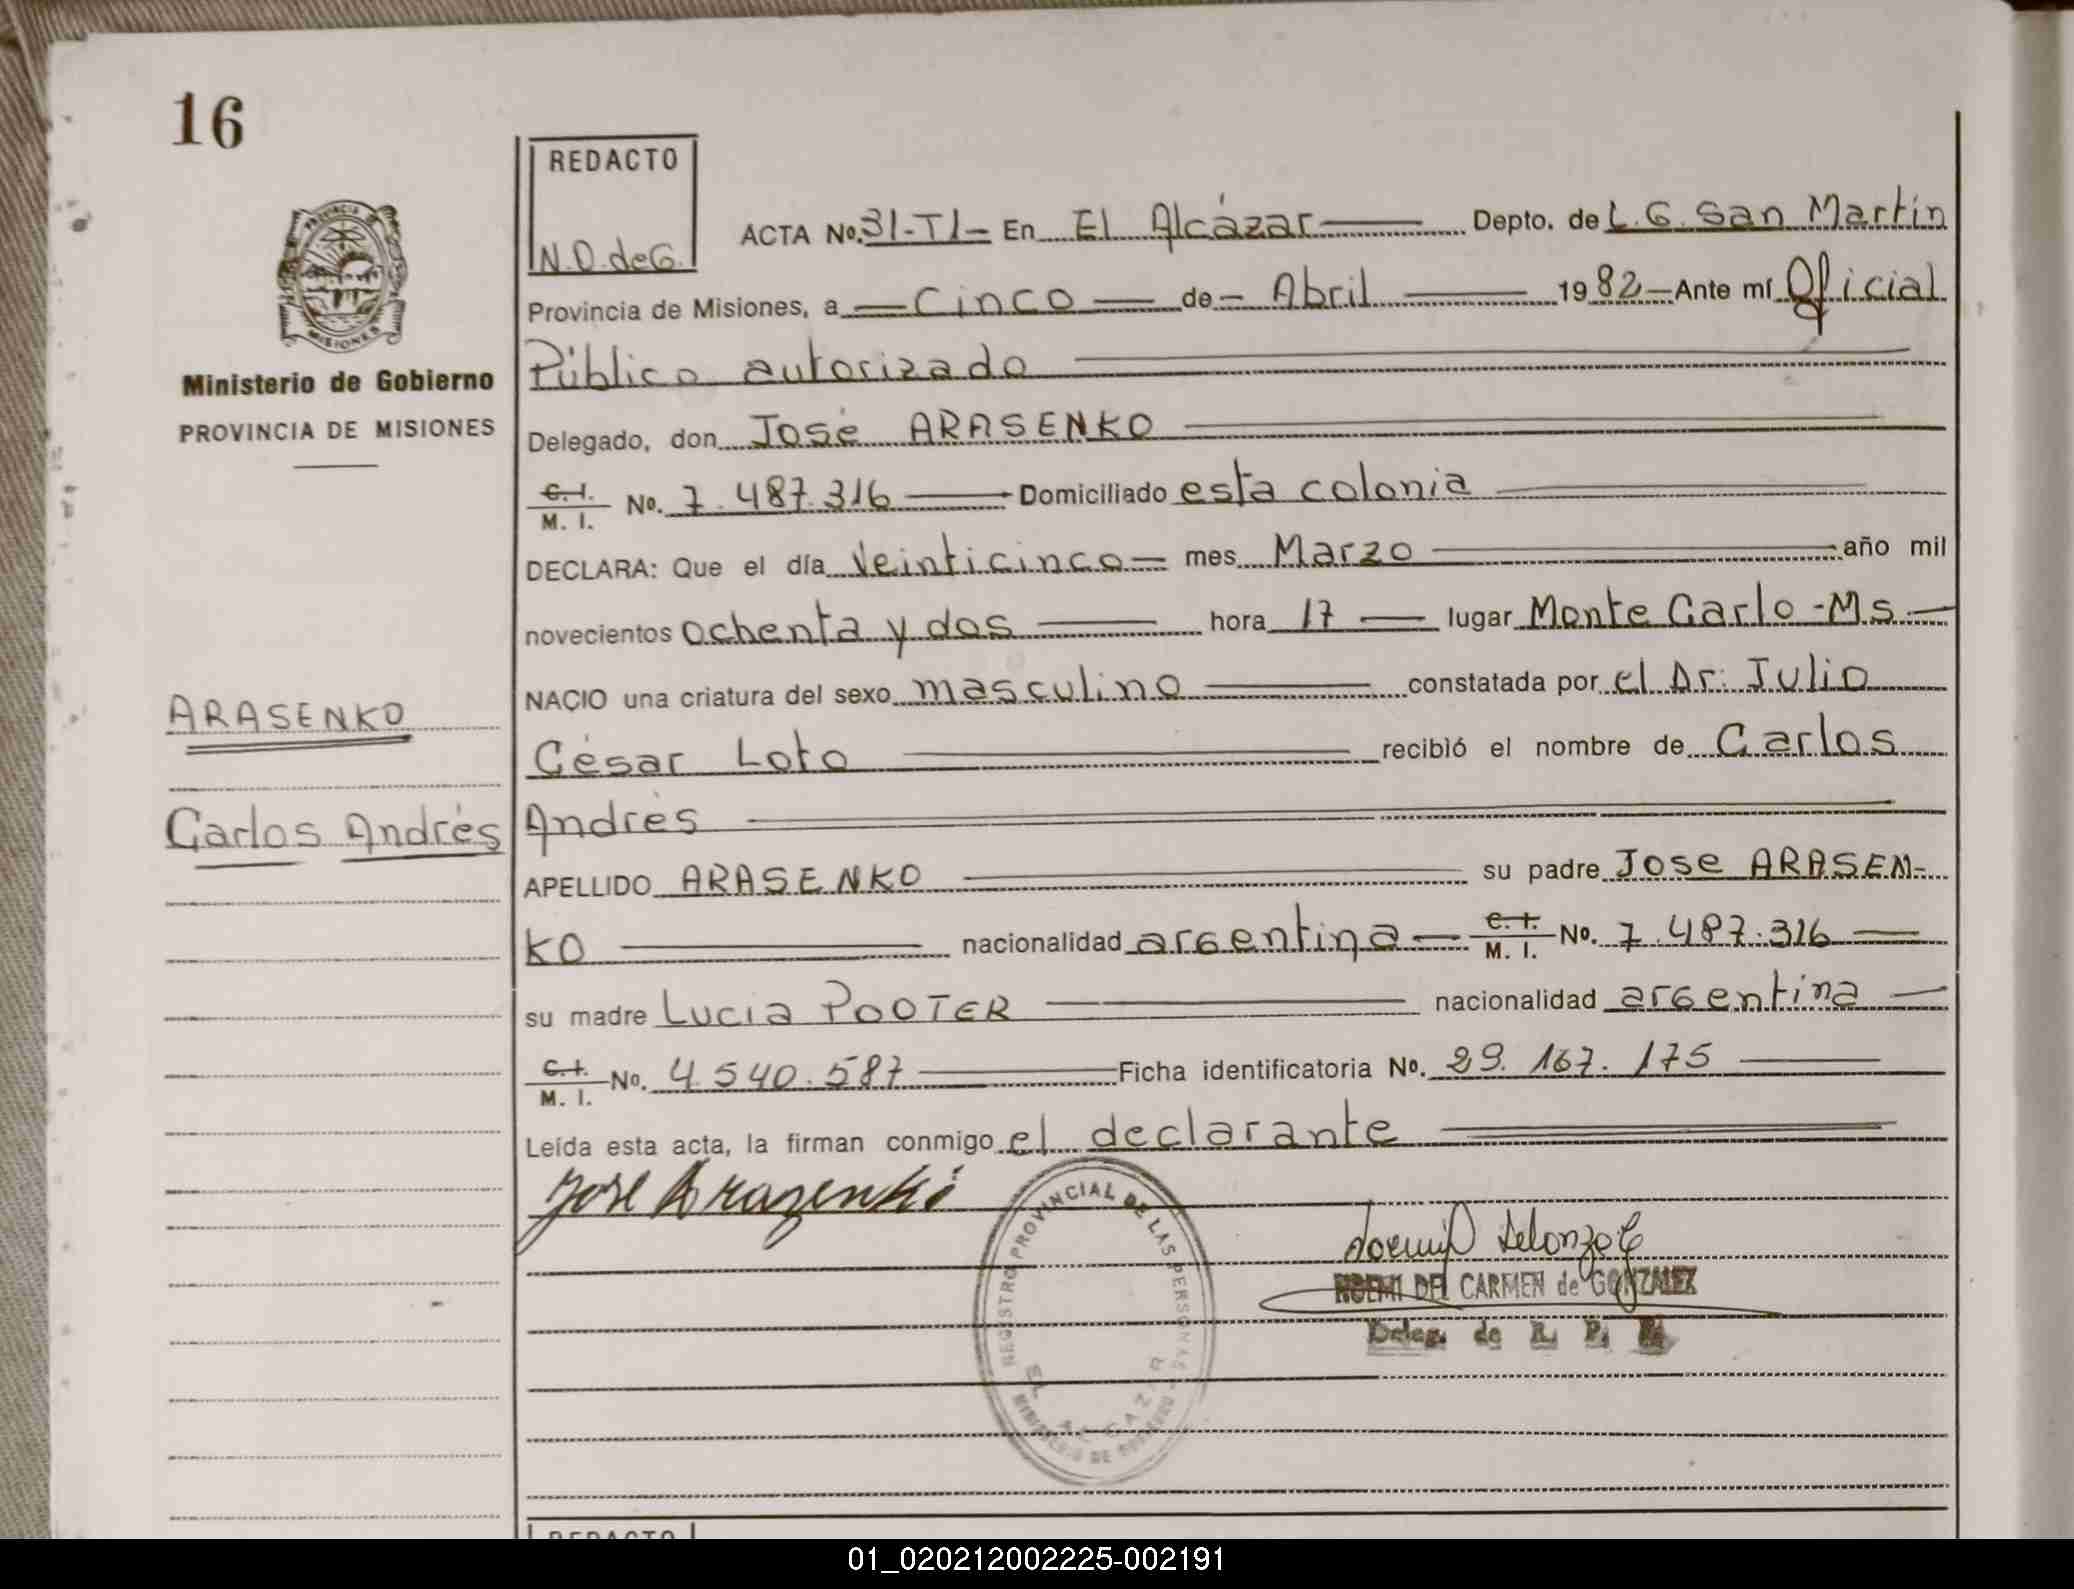 16
REDACTO
N.D. deG.
PROVINCIA DE
MISIONES
Ministerio de Gobierno
PROVINCIA DE MISIONES
ARASENKO
Carlos Andrés
ACTA No. 31-T1- En El Alcázar Depto. de L.G. San Martín
Provincia de Misiones, a Cinco de Abril 1982 Ante mí Oficial
Público autorizado
Delegado, don José ARASENKO
C. I. M. I. No. 7.487.316 Domiciliado esta colonia
DECLARA: Que el día Veinticinco mes Marzo año mil
novecientos ochenta y dos hora 17 lugar Monte Carlo-Ms
NACIO una criatura del sexo masculino constatada por el Dr. Julio
César Loto recibió el nombre de Carlos
Andrés
APELLIDO ARASENKO su padre Jose ARASEN-
KO nacionalidad argentina C. I. M. I. No. 7.487.316
su madre Lucia POOTER nacionalidad argentina
C. I. M. I. No. 4.540.587 Ficha identificatoria No. 29.167.175
Leída esta acta, la firman conmigo el declarante
José Arazenko
REGISTRO PROVINCIAL DE LAS PERSONAS
EL ALCAZAR
MINISTERIO DE GOBIERNO
NOEMI DEL CARMEN de GONZALEZ
Deleg. de R. P. P.
REDACTO
01_020212002225-002191